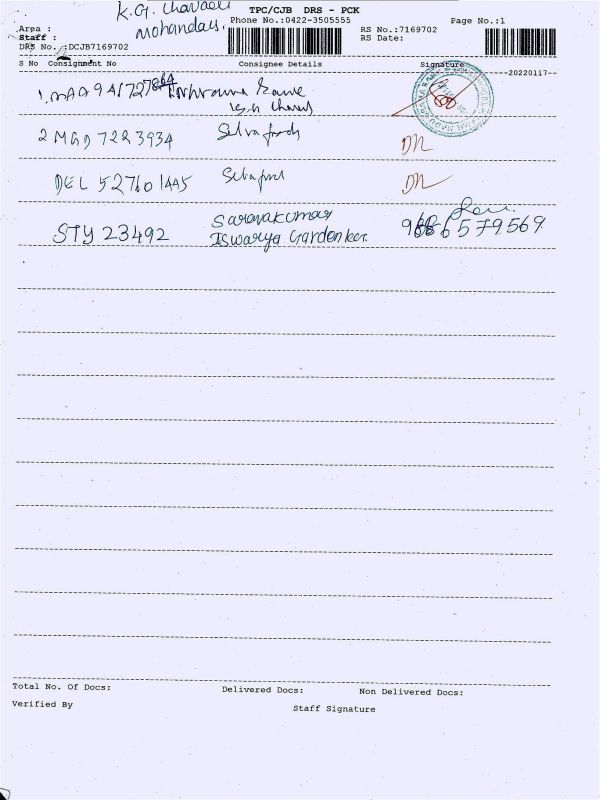 K.G. Chavadi
TPC/CJB DRS - PCK
Area :
Mohandas.
Phone No.:0422-3505555
Page No.:1
Staff :
RS No.:7169702
DRS No. :DCJB7169702
RS Date:
S No Consignment No Consignee Details Signature
--20220117--
1. MAA
2 MGD 7223934 Selva foods DN
DEL 527601445 DN
STY 23492 Saravakumar 9686579569
Iswarya Garden
Total No. Of Docs: Delivered Docs: Non Delivered Docs:
Verified By
Staff Signature